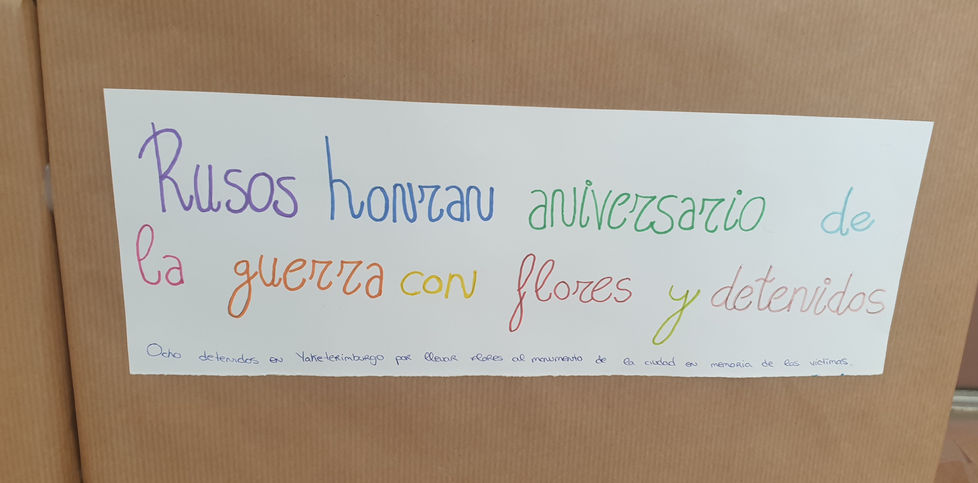 Rusos honran aniversario de
la guerra con flores y detenidos
Ocho detenidos en Yaketerimburgo por llevar flores al monumento de la ciudad en memoria de las victimas.